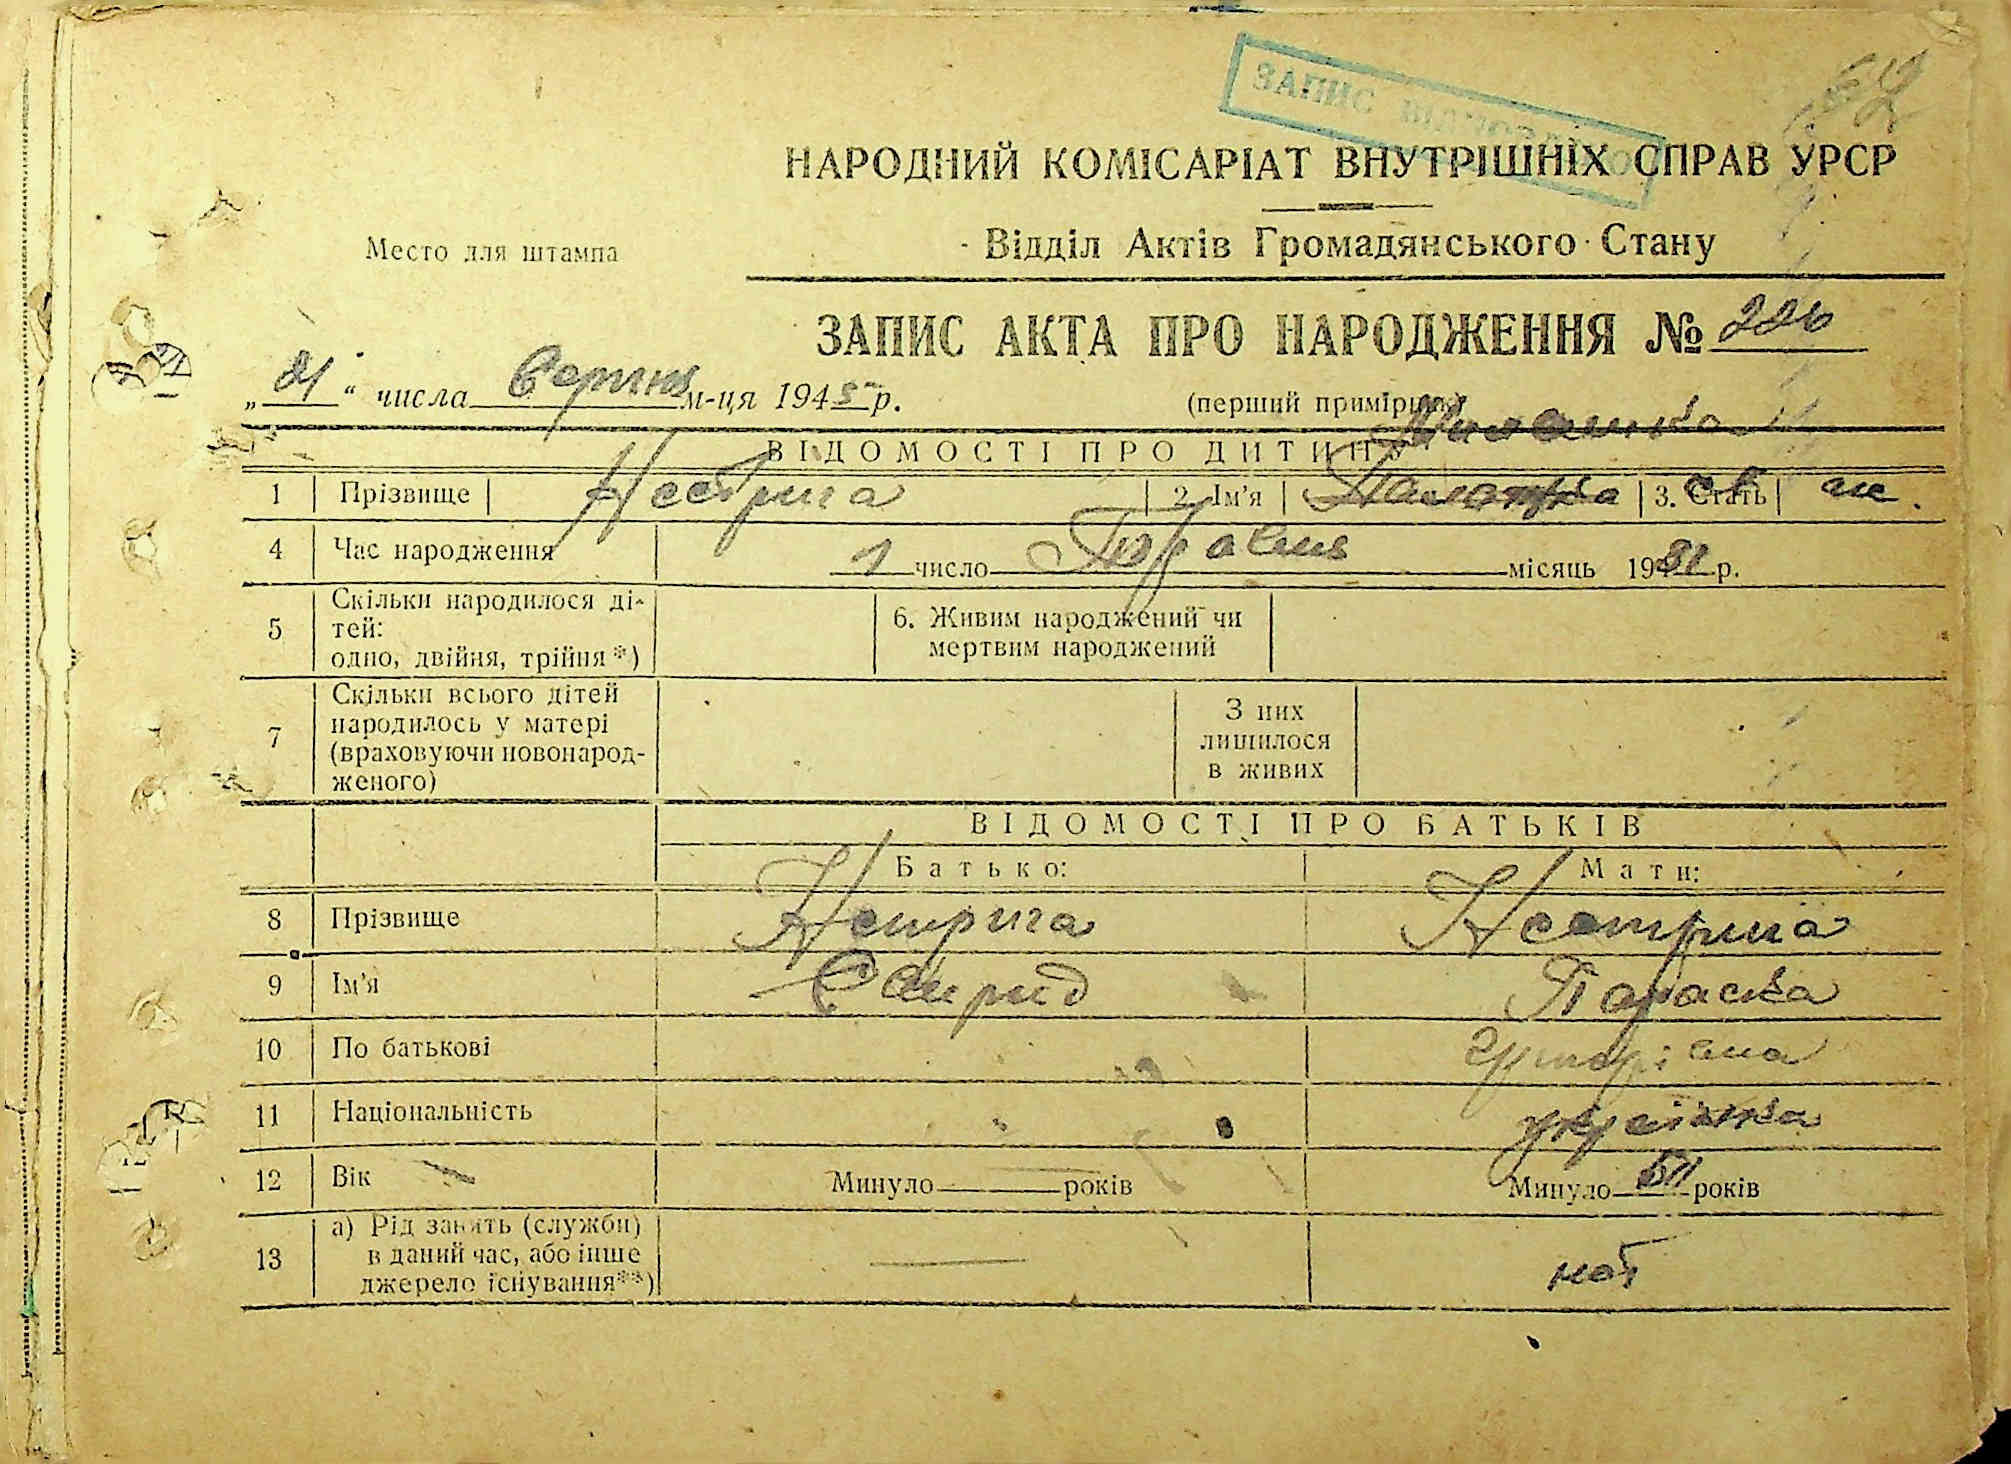 ЗАПИС ВІДНОВЛЕНО
НАРОДНИЙ КОМІСАРІАТ ВНУТРІШНІХ СПРАВ УРСР
Место для штампа
Відділ Актів Громадянського Стану
ЗАПИС АКТА ПРО НАРОДЖЕННЯ № 226
„21“ числа Серпня м-ця 1945 р.
(перший примірник)
ВІДОМОСТІ ПРО ДИТИНУ
1 Прізвище Нестрига 2. Ім'я 3. Стать ж.
4 Час народження 1 число Травня місяць 1931 р.
5 Скільки народилося ді-
тей:
одно, двійня, трійня*)
6. Живим народжений чи
мертвим народжений
7 Скільки всього дітей
народилось у матері
(враховуючи новонарод-
женого)
З них
лишилося
в живих
ВІДОМОСТІ ПРО БАТЬКІВ
Батько: Мати:
8 Прізвище Нестрига Нестрига
9 Ім'я Свирид Параска
10 По батькові
11 Національність українка
12 Вік Минуло років Минуло років
13 а) Рід занять (служби)
в даний час, або інше
джерело існування**)